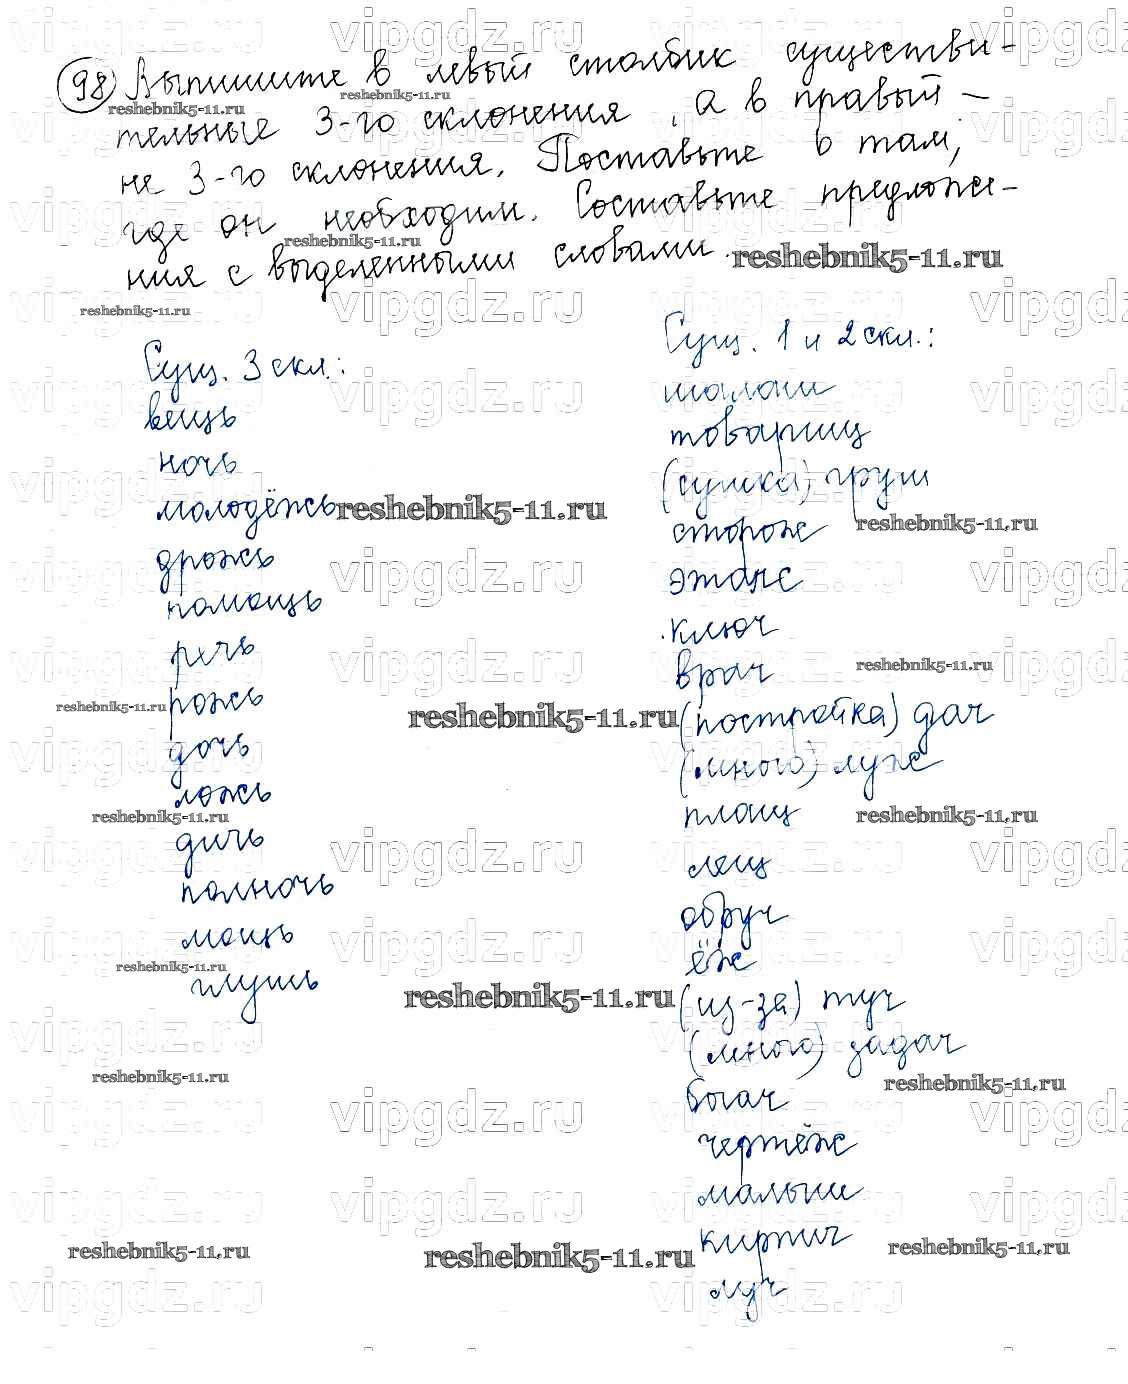 98) Выпишите в левый столбик существи-
тельные 3-го склонения, а в правый –
не 3-го склонения. Поставьте ь там,
где он необходим. Составьте предложе-
ния с выделенными словами.
Сущ. 3 скл.:
вещь
ночь
молодёжь
дрожь
помощь
речь
рожь
дочь
ложь
дичь
полночь
мощь
глушь
Сущ. 1 и 2 скл.:
шалаш
товарищ
(сушка) груш
сторож
этаж
ключ
врач
(постройка) дач
(много) луж
плащ
лещ
обруч
ёж
(из-за) туч
(много) задач
богач
чертёж
малыш
кирпич
луч
reshebnik5-11.ru
vipgdz.ru